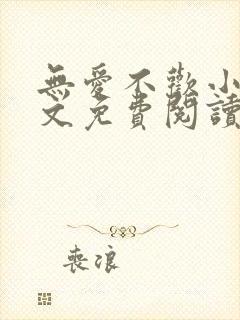 無愛不歡小
文免費閱讀
喪浪